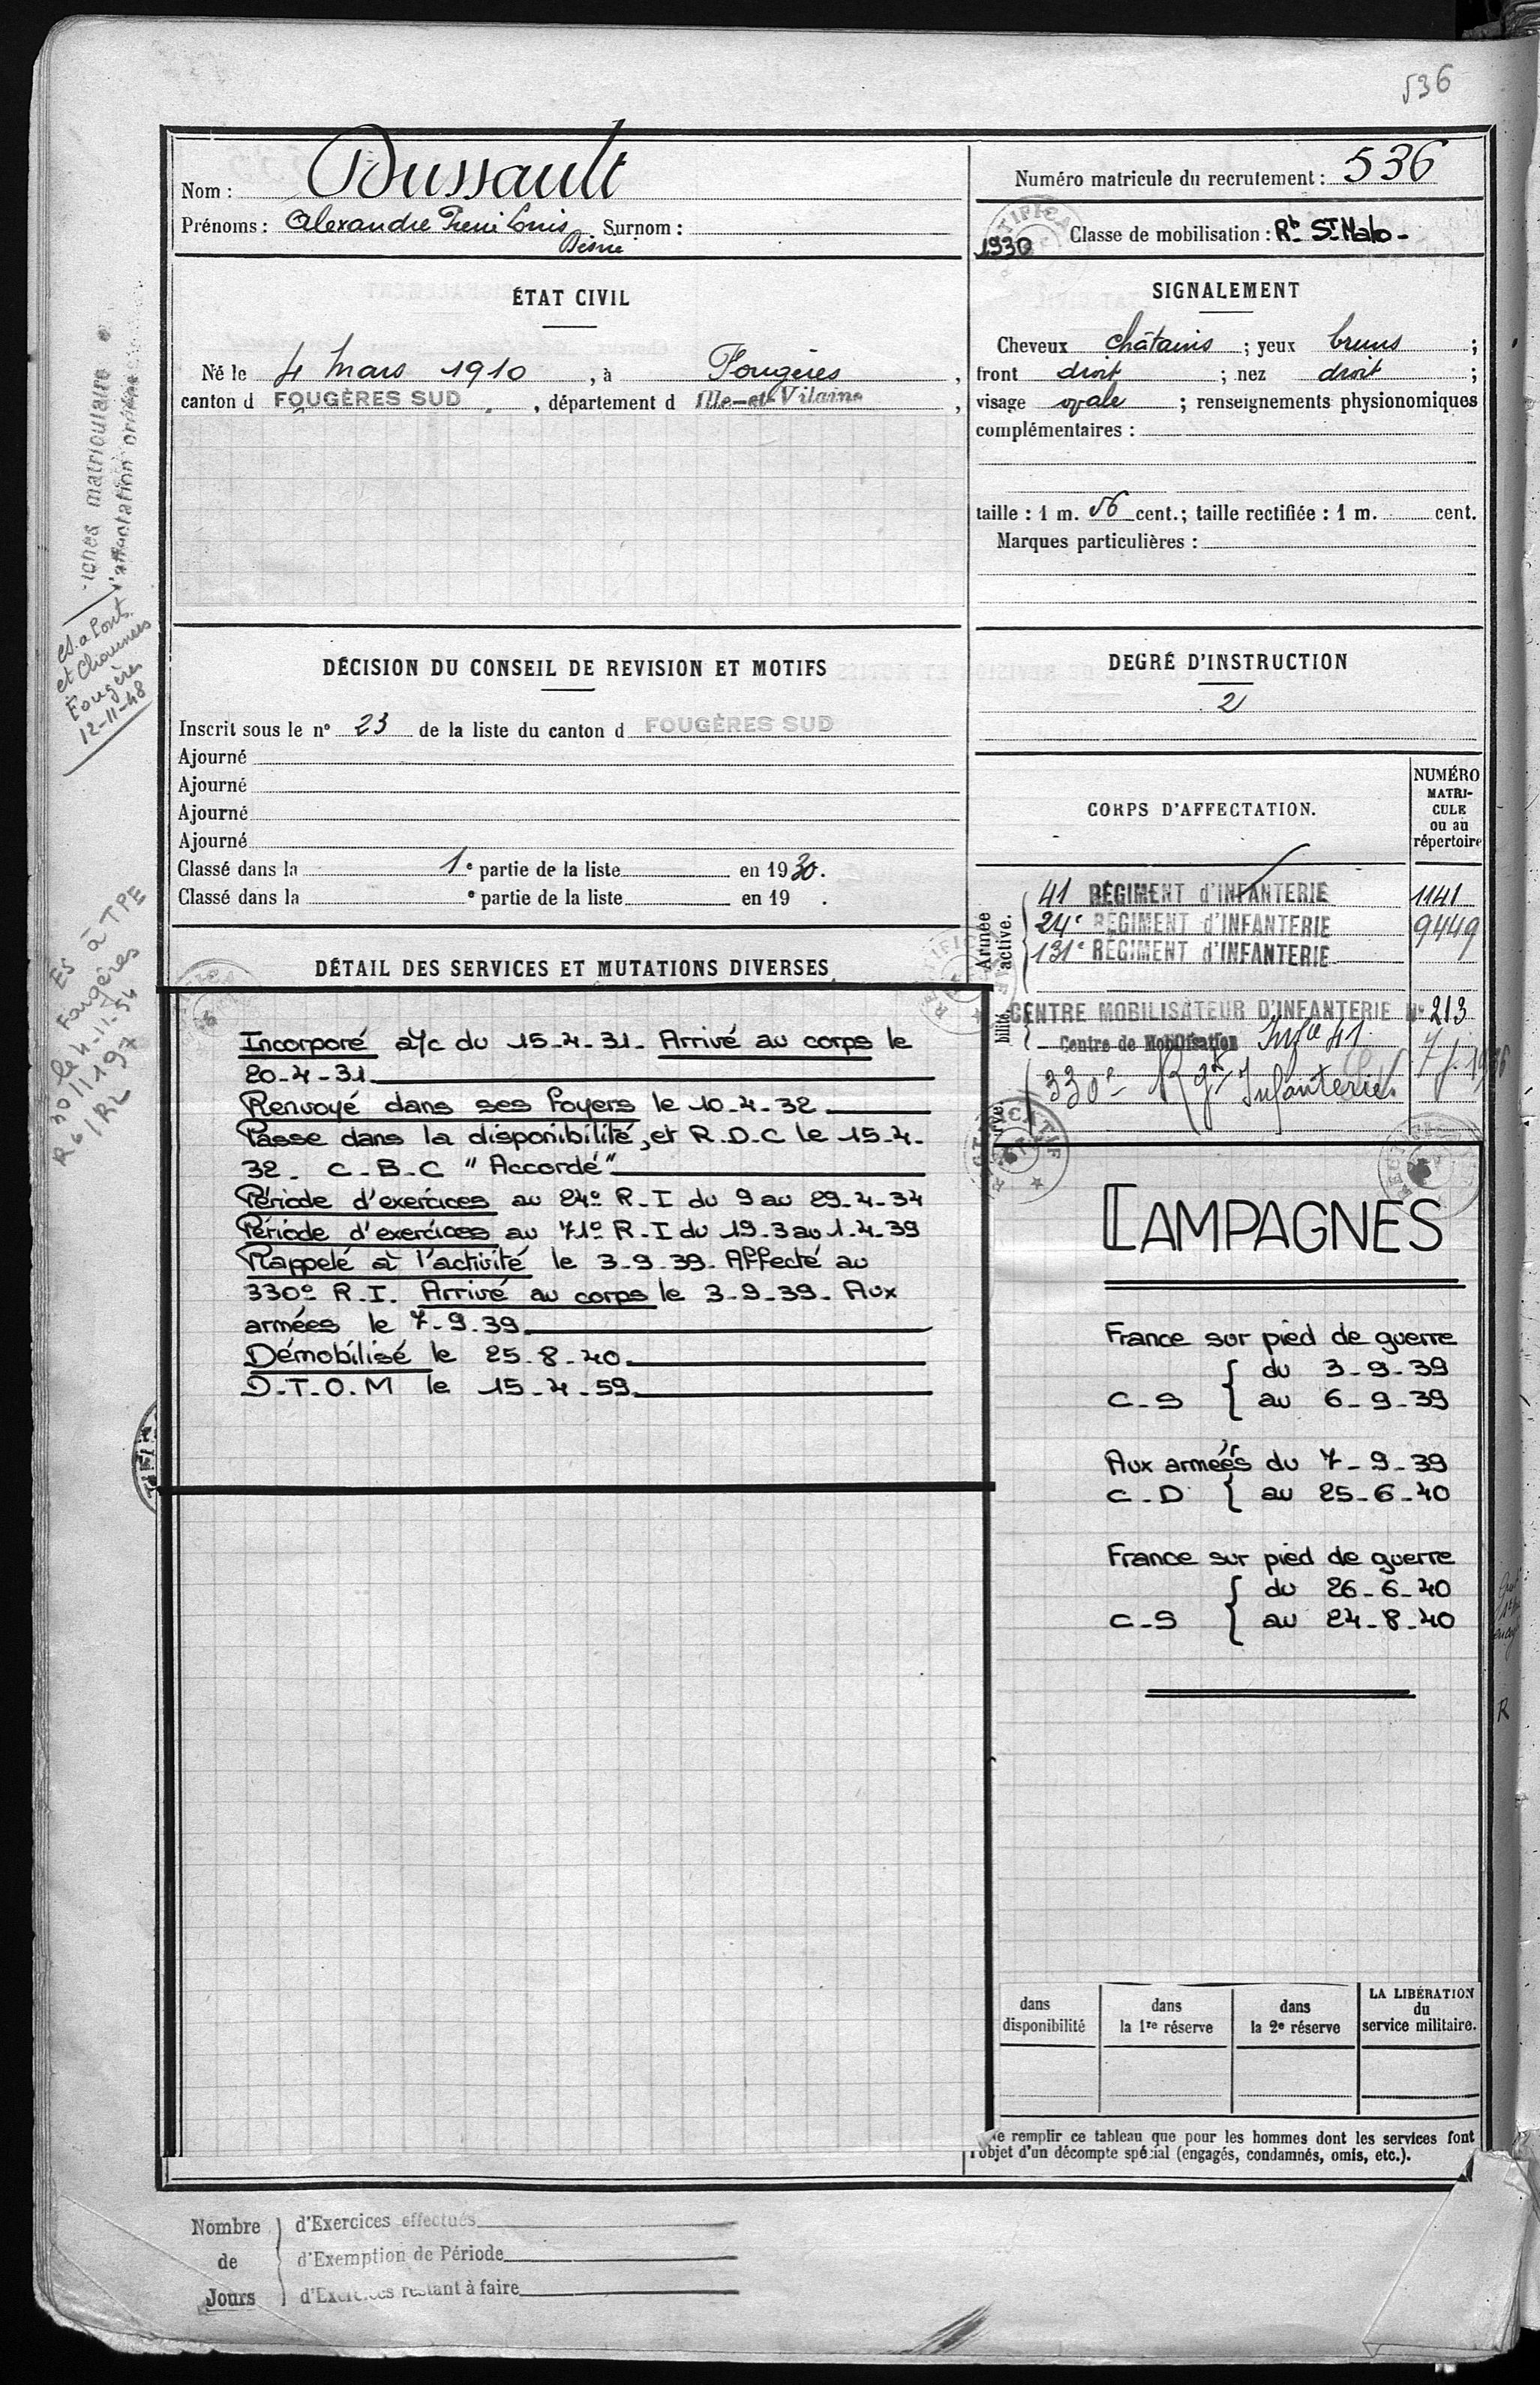 536
Nom : Dussault
Prénoms : Alexandre René Louis Surnom :
Désiré
Numéro matricule du recrutement : 536
1930 Classe de mobilisation : Rt St Malo -
ÉTAT CIVIL
Né le 4 Mars 1910, à Fougères,
canton d FOUGÈRES SUD, département d Ille-et-Vilaine,
SIGNALEMENT
Cheveux châtains ; yeux bruns ;
front droit ; nez droit ;
visage ovale ; renseignements physionomiques
complémentaires :
taille : 1 m. 56 cent. ; taille rectifiée : 1 m. cent.
Marques particulières :
matriculaire
l'affectation
Et. a Ponts
et Chaussées
Fougères
12-11-48
DÉCISION DU CONSEIL DE REVISION ET MOTIFS
Inscrit sous le n° 23 de la liste du canton d FOUGÈRES SUD
Ajourné
Ajourné
Ajourné
Ajourné
Classé dans la 1e partie de la liste en 1930.
Classé dans la e partie de la liste en 19 .
DEGRÉ D'INSTRUCTION
2
CORPS D'AFFECTATION.
NUMÉRO
MATRI-
CULE
ou au
répertoire
Armée
active.
41 RÉGIMENT d'INFANTERIE 1141
24e RÉGIMENT d'INFANTERIE 9449
131e RÉGIMENT d'INFANTERIE
CENTRE MOBILISATEUR D'INFANTERIE N° 213
Centre de Mobilisation Inf ie 41
330e Rgt Infanterie
ES à TPE
Fougères
DÉTAIL DES SERVICES ET MUTATIONS DIVERSES
Incorporé a/c du 15-4-31. Arrivé au corps le
20-4-31.
Renvoyé dans ses foyers le 10-4-32.
Passe dans la disponibilité, et R.D.C le 15.4.
32. C-B-C "Accordé"
Période d'exercices au 24e R-I du 9 au 29-4-34
Période d'exercices au 71e R-I du 19.3 au 1.4.39
Rappelé à l'activité le 3-9-39. Affecté au
330e R.I. Arrivé au corps le 3-9-39. Aux
armées le 7-9.39.
Démobilisé le 25-8-40.
D-T-O-M le 15-4-59.
CAMPAGNES
France sur pied de guerre
C-S { du 3-9-39
au 6-9-39
Aux armées du 7-9-39
C-D { au 25-6-40
France sur pied de guerre
C-S { du 26-6-40
au 24-8-40
dans
disponibilité
dans
la 1re réserve
dans
la 2e réserve
LA LIBÉRATION
du
service militaire.
Ne remplir ce tableau que pour les hommes dont les services font
l'objet d'un décompte spécial (engagés, condamnés, omis, etc.).
Nombre
de
Jours
d'Exercices effectués
d'Exemption de Période
d'Exercices restant à faire